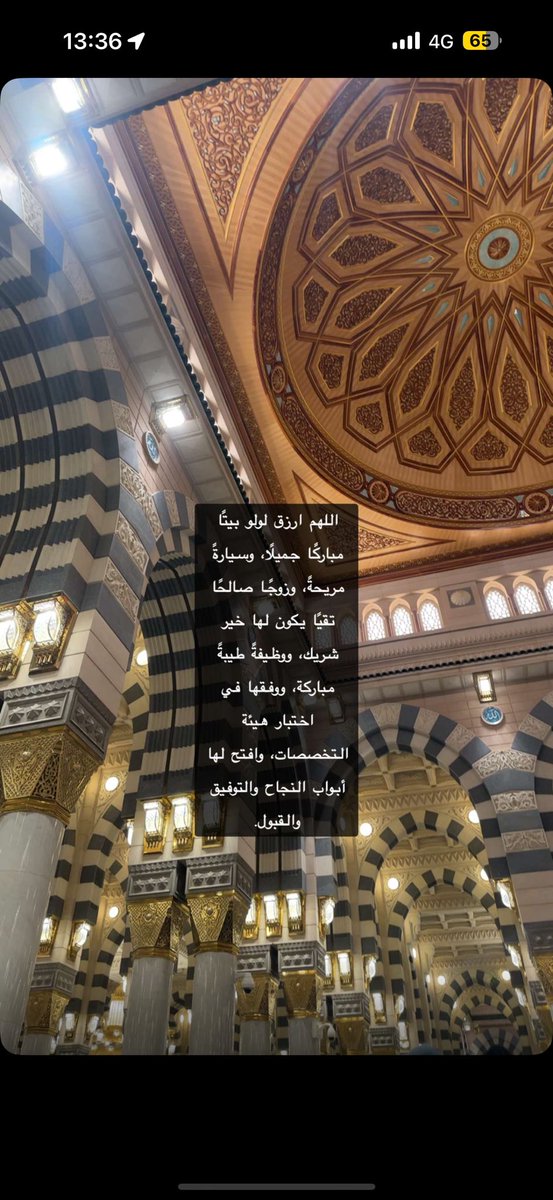 13:36
4G
65
اللهم ارزق لولو بيتًا
مباركًا جميلًا، وسيارةً
مريحةً، وزوجًا صالحًا
تقيًا يكون لها خير
شريك، ووظيفةً طيبةً
مباركة، ووفقها في
اختبار هيئة
التخصصات، وافتح لها
أبواب النجاح والتوفيق
والقبول.